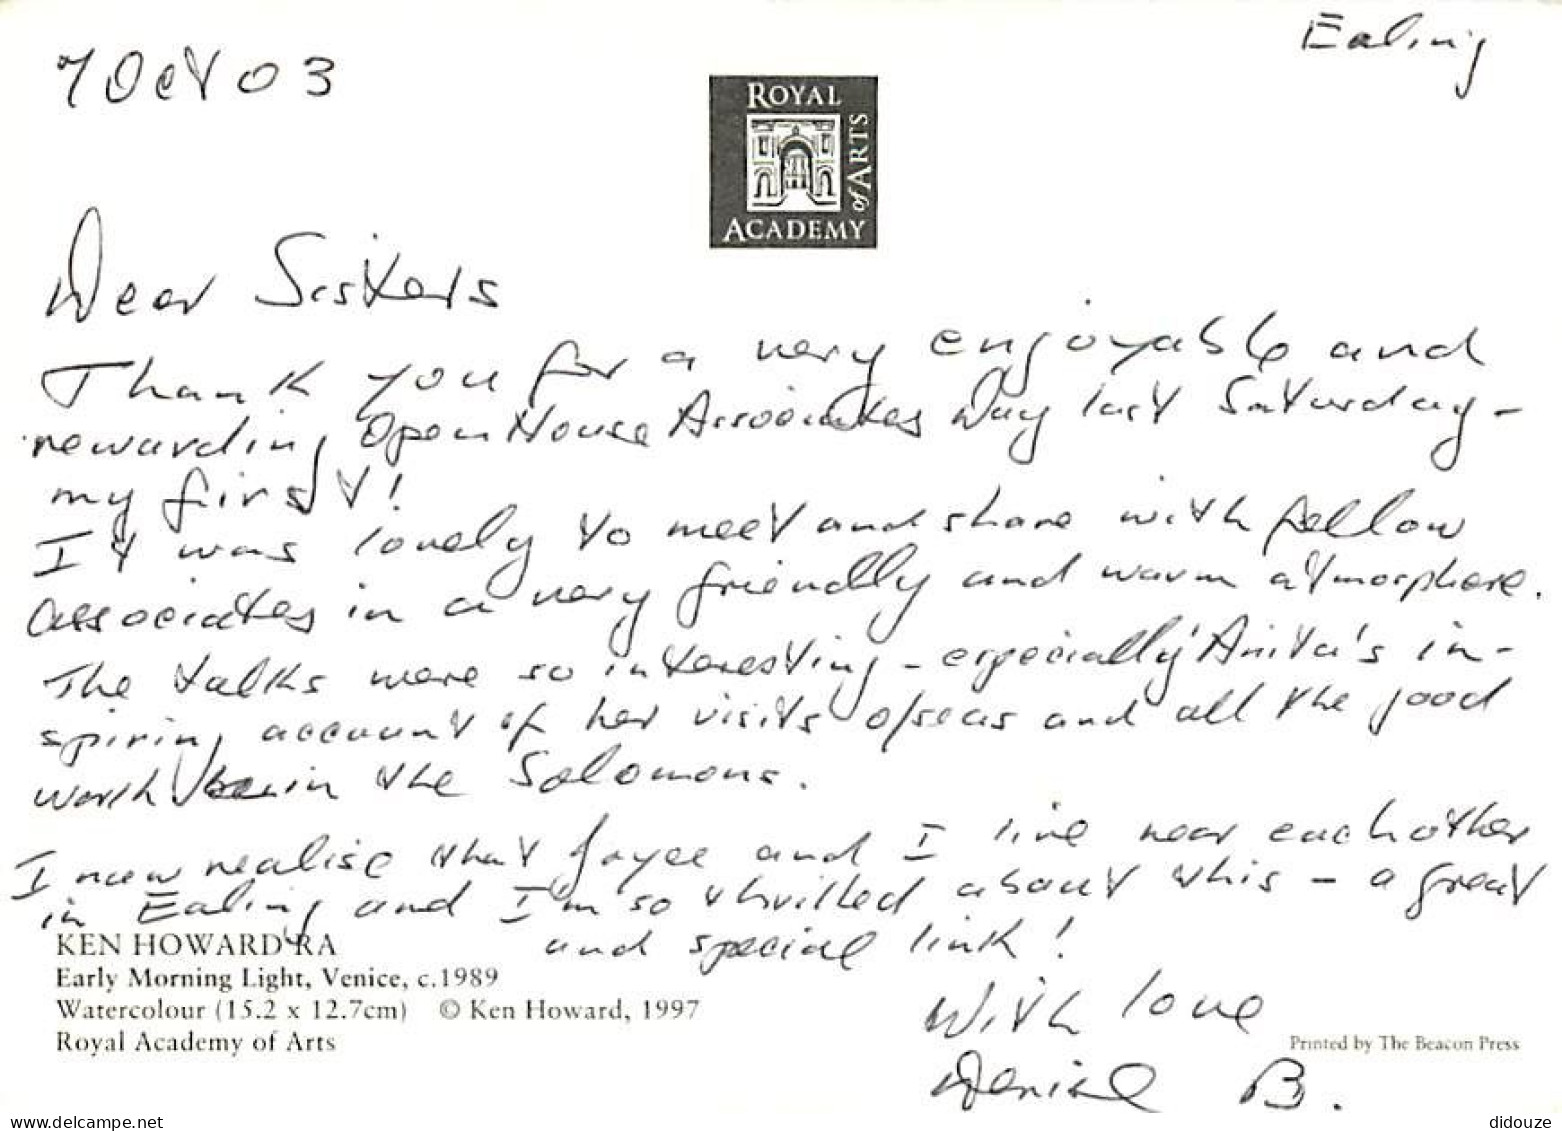 Ealing
7 Oct 03
ROYAL
ACADEMY
of ARTS
Dear Sisters
Thank you for a very enjoyable and
rewarding Open House Associates Day last Saturday -
my first!
It was lovely to meet and share with fellow
associates in a very friendly and warm atmosphere.
The talks were so interesting - especially Anita's in-
spiring account of her visits o/seas and all the good
work in the Solomons.
I now realise that Joyce and I live near each other
in Ealing and I'm so thrilled about this - a great
and special link!
With love
Denise B.
KEN HOWARD RA
Early Morning Light, Venice, c.1989
Watercolour (15.2 x 12.7cm) © Ken Howard, 1997
Royal Academy of Arts
Printed by The Beacon Press
www.delcampe.net
didouze